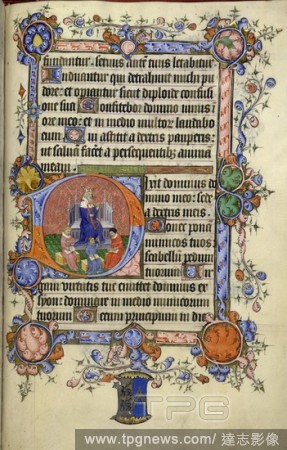 funduntur. Servus autem tuus letabitur
Induantur qui detrahunt michi pu
dore: et operiantur sicut diploide confusi
one sua Confitebor domino nimis
ore meo: et in medio multorum laudabo
eum Qui astitit a dextris pauperis:
ut salvam faceret a persequentibus animam
meam.
Dixit dominus do
mino meo: sede
a dextris meis.
Donec ponam
inimicos tuos:
scabellum pedum
tuorum
virtutis tue emittet dominus ex
syon: dominare in medio inimicorum
tuorum Tecum principium in die
TPG
www.tpgnews.com/ 達志影像